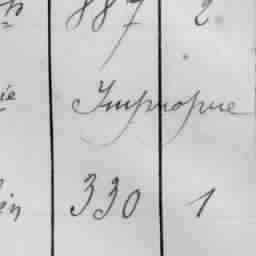 887 2
ie Impropre
in 330 1